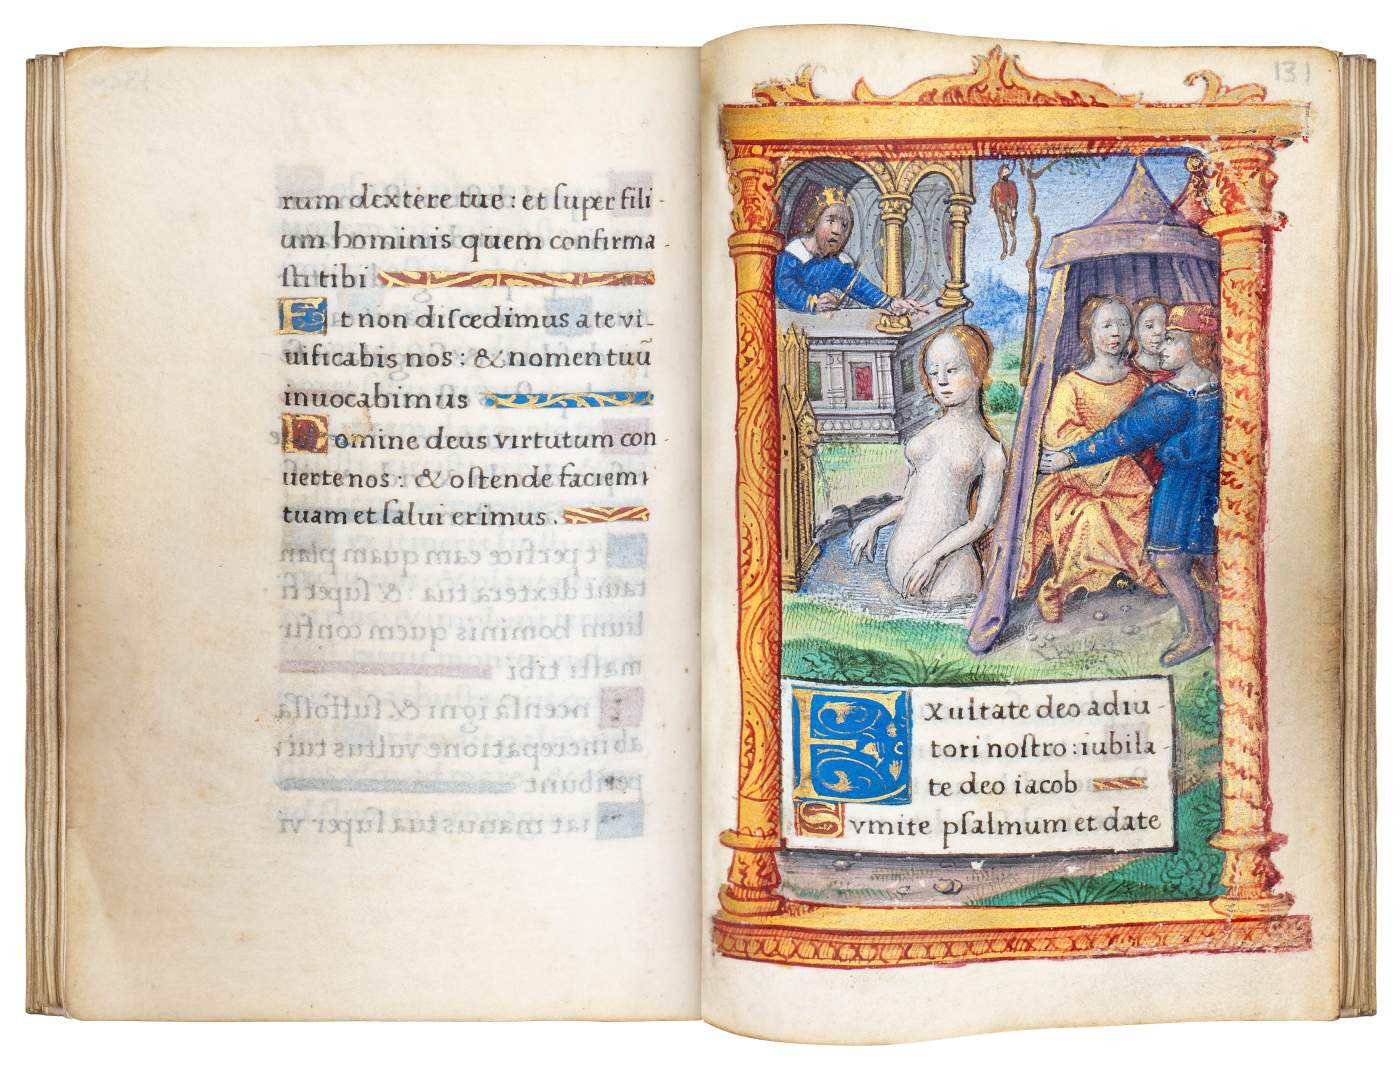 rum dextere tue : et super fili-
um hominis quem confirma-
sti tibi
Et non discedimus a te vi-
uificabis nos : & nomen tuū
inuocabimus
Domine deus virtutum con-
uerte nos : & ostende faciem
tuam et salui erimus .
131
Exultate deo adiu-
tori nostro : iubila-
te deo iacob
Svmite psalmum et date